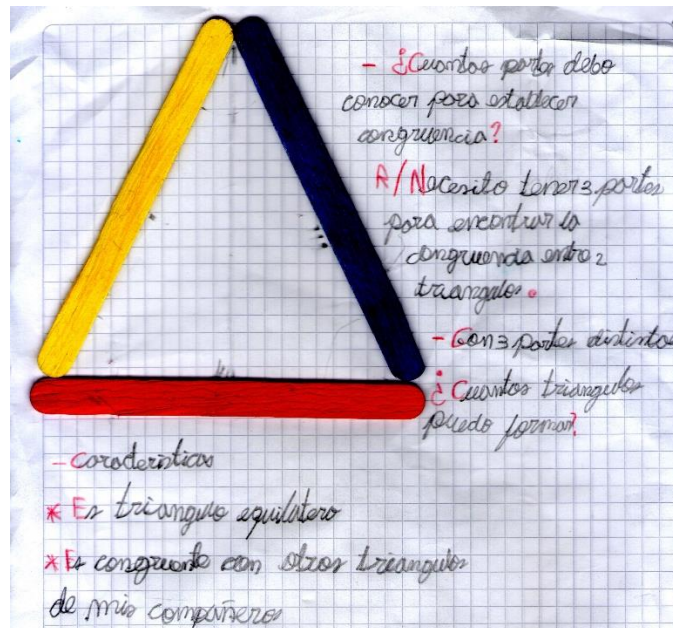 - ¿Cuantas partes debo
conocer para establecer
congruencia?
R/Necesito tener 3 partes
para encontrar la
congruencia entre 2
triangulos.
- Con 3 partes distintas
¿Cuantos triangulos
puedo formar?
- Caracteristicas
* Es triangulo equilatero
* Es congruente con otros triangulos
de mis compañeros